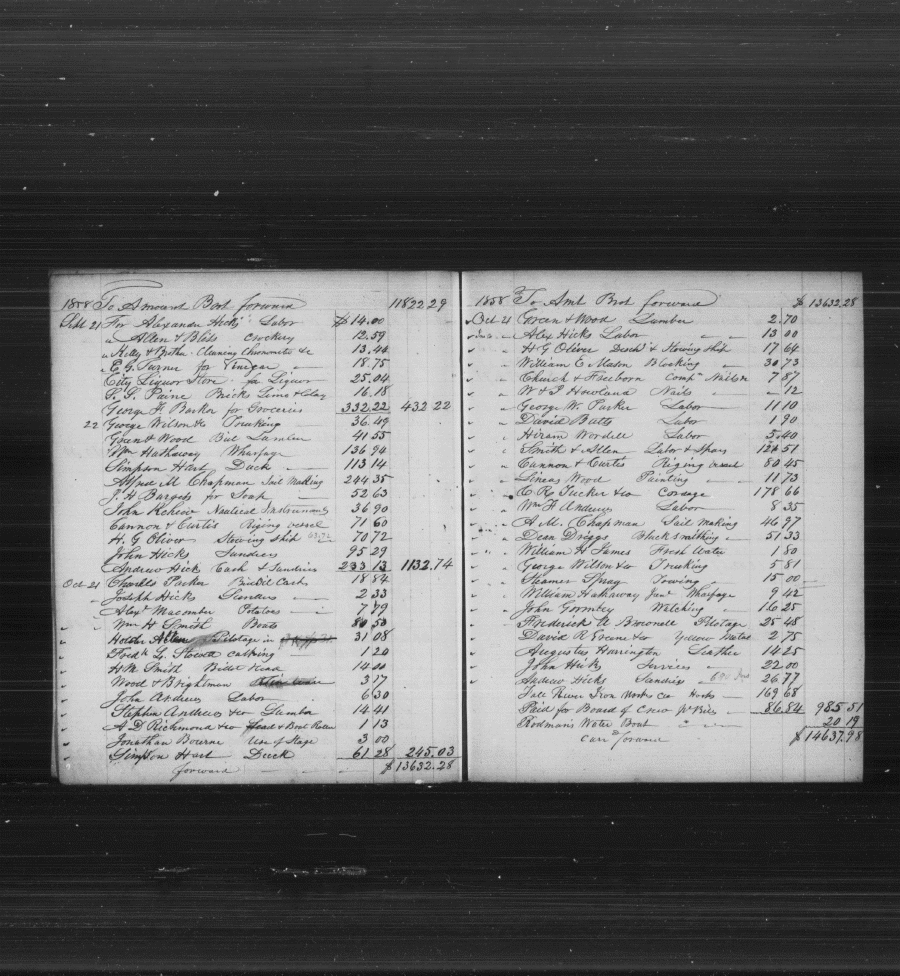 1858 To Amount Bort forward 11822.29
Sept 21 For Alexander Hicks Labor $14.00
" Allen & Bliss Crockery 12.59
" Kelly & Brother Cleaning Chronometer &c 13.44
" E. G. Turner for Vinegar 18.75
City Liquor Store for Liquor 25.04
Paine Brick Lime & Clay 16.18
George F Barker for Groceries 332.22 432 22
22 George Wilson &Co Trucking 36.49
Green & Wood Bill Lumber 41 55
Wm Hathaway Wharfage 136 94
Simpson Hart Duck 113 14
Alfred M Chapman Sail Making 244 35
for Soap 52 63
John Nautical Instruments 36 90
Cannon & Curtis Riging vessel 71 60
H. G Oliver Stowing ship 70 72
John Hicks Sundries 95 29
Andrew Hick Cash & Sundries 233 13 1132.74
Oct 21 Charles Parker 18 84
Joseph Hicks Sundries 2 33
Alexr Macomber Potatoes 7 79
Wm H Smith Boats 80 50
Allen Pilotage in 31 08
Fredk L. 1 20
H M Smith 14 00
Wood & Brightman 3 17
John Andrews Labor 6 30
Stephen Andrews &co Lumber 14.41
A D Richmond &co & Boat 1 13
Jonathan Bourne Use of Stage 3 00
Simpson Hart Duck 61 28 245.03
forward $13632.28
1858 To Amt Brot forward $ 13632.28
Oct 21 Green & Wood Lumber 2.70
" Alex Hicks Labor 13 00
" H G Oliver & Stowing ship 17 64
" William E. Mason Blacking 30 73
" Church & Freeborn Compn Nails &c 7 87
" W & P Howland Nails 12
" George W. Parker Labor 11 10
" David Batts Labor 1 90
" Hiram Wordell Labor 5.40
" Smith & Allen Labor & Spars 124 51
" Cannon & Curtis Riging vessel 80 45
" Lineas Wood Painting 11 73
" C. R. Tucker &co Cordage 178 66
" Wm H Andrews Labor 8 35
" A M. Chapman Sail Making 46 97
" Dean Driggs Black smithing 51 33
" William H James Fresh Water 1 80
" George Wilson &co Trucking 5 81
" Steamer Spray Towing 15 00
" William Hathaway Junr Wharfage 9 42
" John Gormley Watching 16 25
" Frederick U Brownell Pilotage 25 48
" David R Greene &co Yellow Metal 2 75
" Augustus Harrington Leather 14 25
" John Hicks Services 22.00
" Andrew Hicks Sundries 26.77
" Fall River Iron Works Co Hoops 169 68
" Paid for Board of Crew 86.84 985.51
Rodman's Water Boat 20 19
Carrd forward $ 14637.98